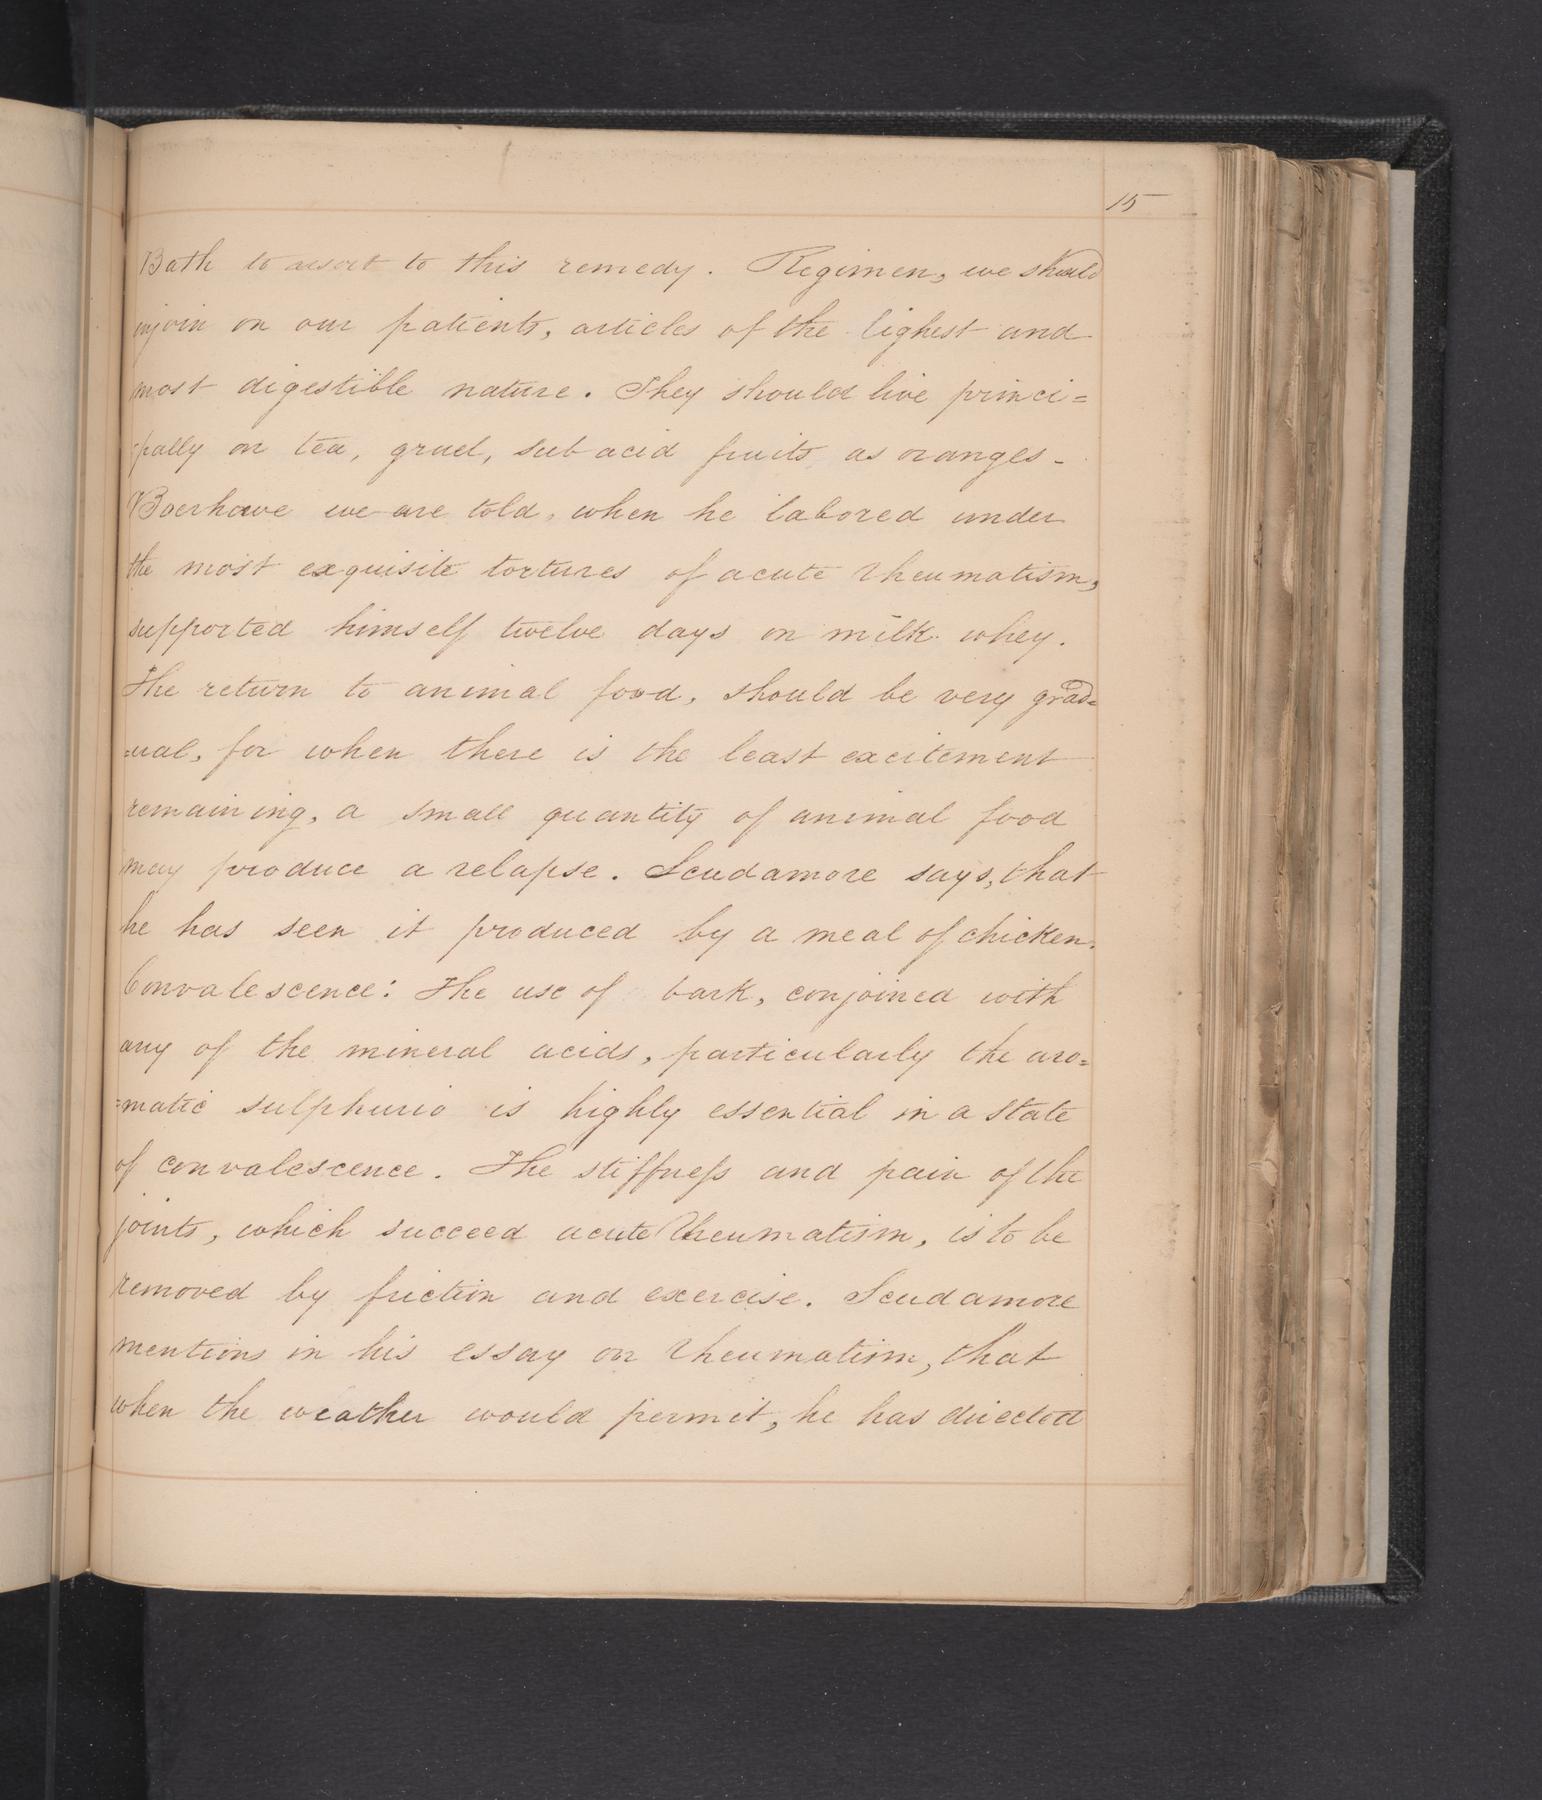 15
Bath to resort to this remedy. Regimen, we should
injoin on our patients, articles of the lighest and
most digestible nature. They should live princi=
=pally on tea, gruel, sub acid fruits as oranges-
Boerhave we are told, when he labored under
the most exquisite tortures of acute rheumatism,
supported himself twelve days on milk whey.
The return to animal food, should be very grad=
=ual, for when there is the least excitement
remaining, a small quantity of animal food
may produce a relapse. Scudamore says, that
he has seen it produced by a meal of chicken.
Convalescence: The use of bark, conjoined with
any of the mineral acids, particularly the aro=
=matic sulphuric is highly essential in a state
of convalescence. The stiffness and pain of the
joints, which succeed acute Rheumatism, is to be
removed by friction and exercise. Scudamore
mentions in his essay on rheumatism, that
when the weather would permit, he has directed